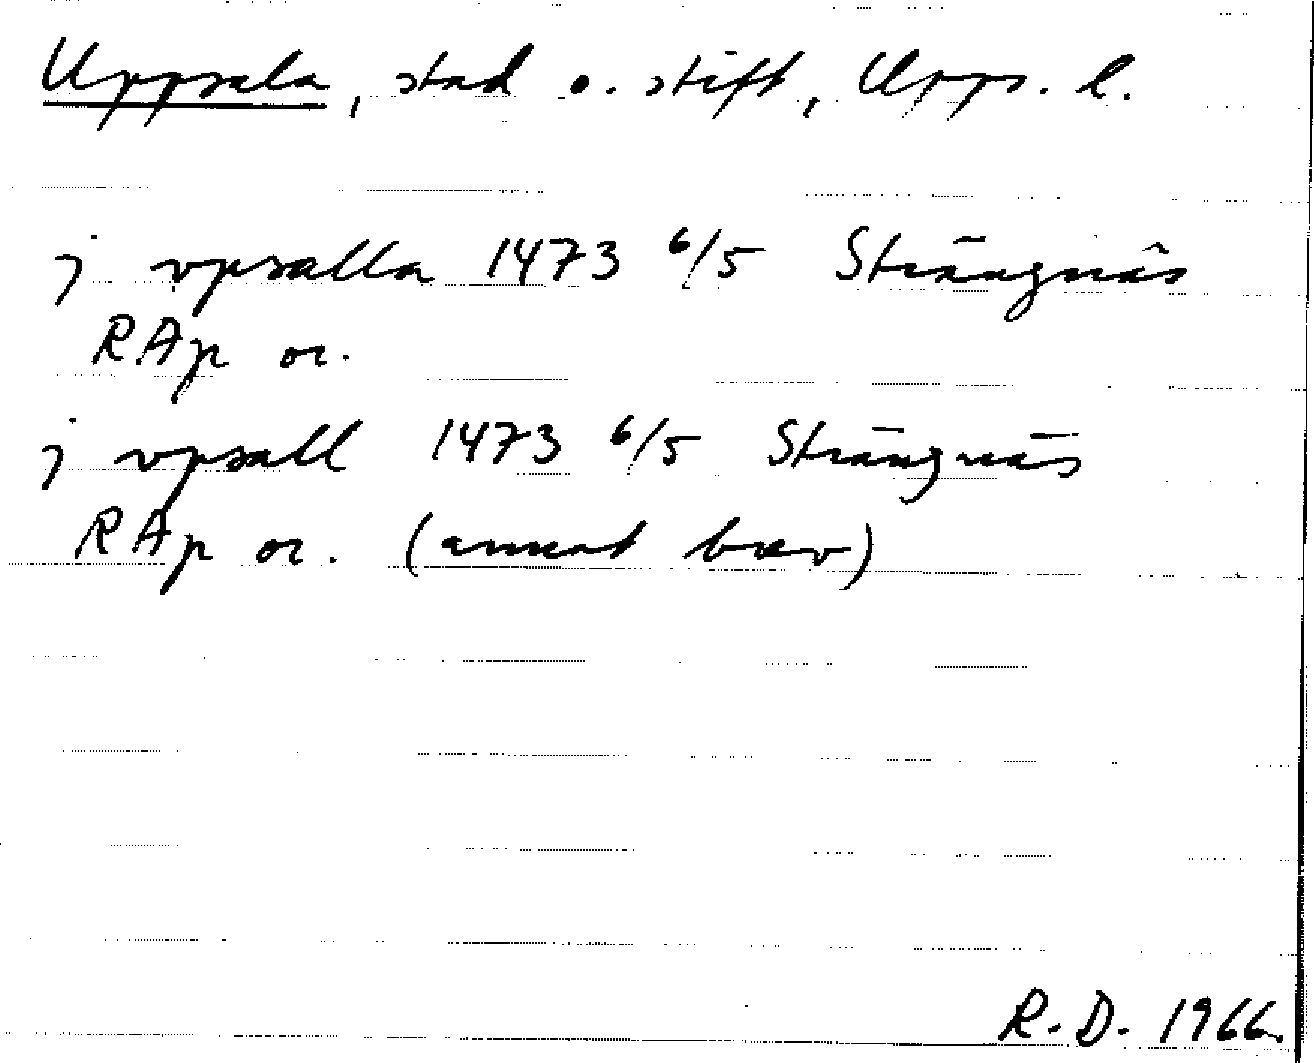 Uppsala, stad o. stift, Upps. l.
j vpsalla 1473 6/5 Strängnäs
RAp or.
j vpsall 1473 6/5 Strängnäs
RAp or. (annat brev)
R.D. 1966.